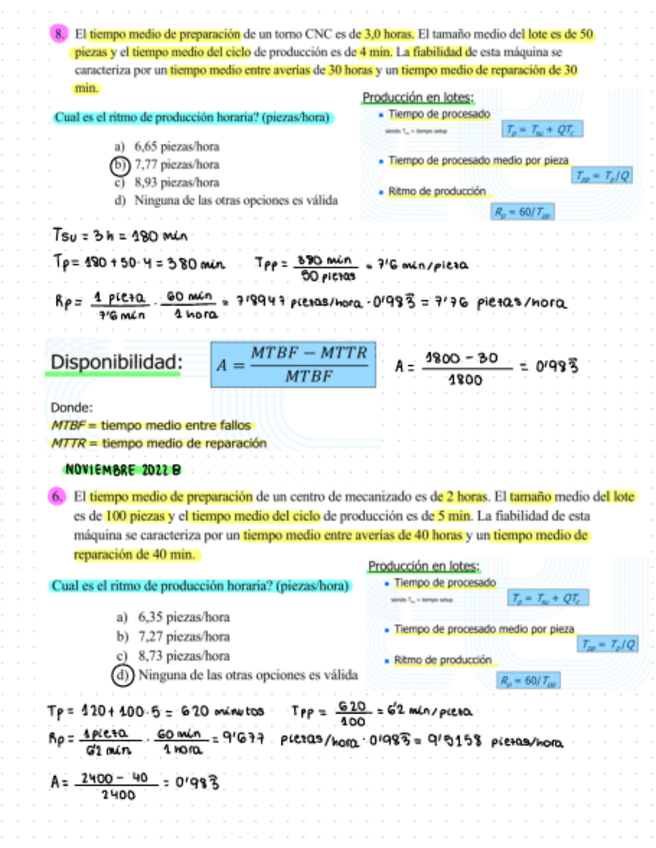 8. El tiempo medio de preparación de un torno CNC es de 3,0 horas. El tamaño medio del lote es de 50
piezas y el tiempo medio del ciclo de producción es de 4 min. La fiabilidad de esta máquina se
caracteriza por un tiempo medio entre averías de 30 horas y un tiempo medio de reparación de 30
min.
Producción en lotes:
Cual es el ritmo de producción horaria? (piezas/hora)
• Tiempo de procesado
siendo Tsu = tiempo setup
Tp = Tsu + QTc
a) 6,65 piezas/hora
b) 7,77 piezas/hora
c) 8,93 piezas/hora
d) Ninguna de las otras opciones es válida
• Tiempo de procesado medio por pieza
Tpp = Tp/Q
• Ritmo de producción
Rp = 60/Tpp
TSU = 3h = 180 min
Tp = 180 + 50·4 = 380 min TPP = 380 min / 50 piezas = 7'6 min/pieza
Rp = 1 pieza / 7'6 min · 60 min / 1 hora = 7'8947 piezas/hora · 0'983 = 7'76 piezas/hora
Disponibilidad: A = MTBF − MTTR / MTBF A = 1800 - 30 / 1800 = 0'983
Donde:
MTBF = tiempo medio entre fallos
MTTR = tiempo medio de reparación
NOVIEMBRE 2022 B
6. El tiempo medio de preparación de un centro de mecanizado es de 2 horas. El tamaño medio del lote
es de 100 piezas y el tiempo medio del ciclo de producción es de 5 min. La fiabilidad de esta
máquina se caracteriza por un tiempo medio entre averías de 40 horas y un tiempo medio de
reparación de 40 min.
Producción en lotes:
Cual es el ritmo de producción horaria? (piezas/hora)
• Tiempo de procesado
siendo Tsu = tiempo setup
Tp = Tsu + QTc
a) 6,35 piezas/hora
b) 7,27 piezas/hora
c) 8,73 piezas/hora
d) Ninguna de las otras opciones es válida
• Tiempo de procesado medio por pieza
Tpp = Tp/Q
• Ritmo de producción
Rp = 60/Tpp
Tp = 120 + 100·5 = 620 minutos TPP = 620 / 100 = 6'2 min/pieza
Rp = 1 pieza / 6'2 min · 60 min / 1 hora = 9'677 piezas/hora · 0'983 = 9'5158 piezas/hora
A = 2400 - 40 / 2400 = 0'983